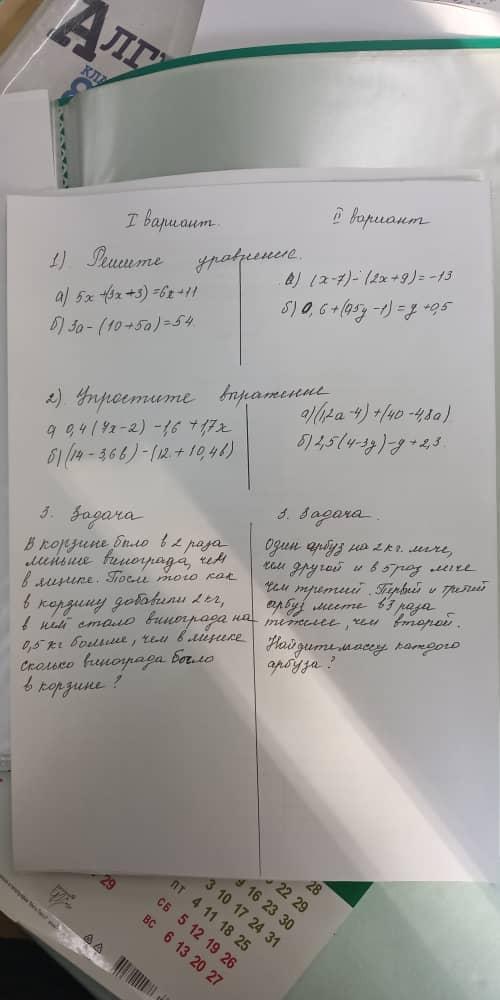 АЛГ
КЛА
8
I вариант.
II вариант
1). Решите уравнение.
а) 5x+(3x+3)=6x+11
б) 3а-(10+5а)=54.
а) (x-7)-(2x+9)=-13
б) 0,6+(0,5y-1)=y+0,5
2). Упростите выражение
а) 0,4(7x-2)-1,6+1,7x
б) (14-3,6в)-(12+10,4в)
а) (1,2а-4)+(40-4,8а)
б) 2,5(4-3y)-y+2,3.
3. Задача
В корзине было в 2 раза
меньше винограда, чем
в ящике. После того как
в корзину добавили 2кг,
в нем стало винограда на
0,5 кг больше, чем в ящике
сколько винограда было
в корзине?
3. Задача.
Один арбуз на 2 кг. легче,
чем другой и в 5 раз легче
чем третий. Первый и третий
арбуз месте в 3 раза
тяжелее, чем второй.
Найдите массу каждого
арбуза?
29
28
22 29
ПТ 3 10 17 24 31
9 16 23 30
СБ 4 11 18 25
ВС 5 12 19 26
6 13 20 27